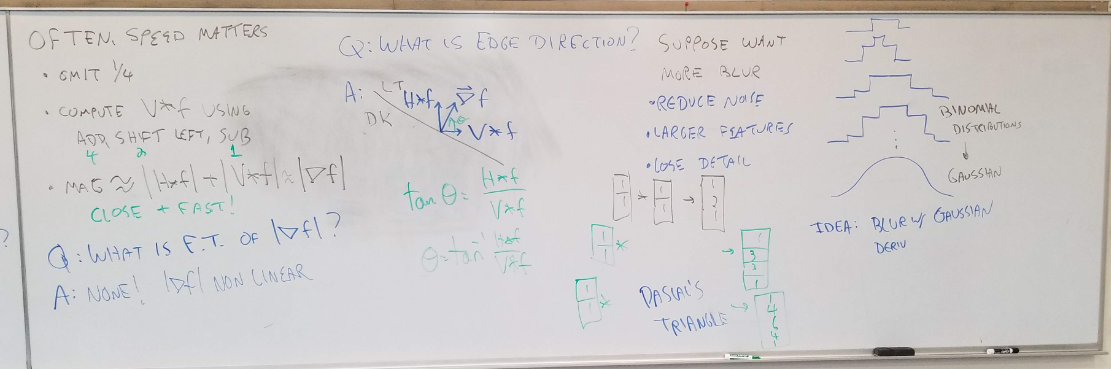 OFTEN, SPEED MATTERS
• OMIT 1/4
• COMPUTE V*f USING
ADD, SHIFT LEFT, SUB
4 2 1
• MAG ≈ |H*f| + |V*f| ≈ |∇f|
CLOSE + FAST!
Q: WHAT IS F.T. OF |∇f|?
A: NONE! |∇f| NON LINEAR
Q: WHAT IS EDGE DIRECTION?
A: LT
DK
H*f ∇f
θ
V*f
tan θ = H*f / V*f
θ = tan⁻¹ H*f / V*f
SUPPOSE WANT
MORE BLUR
• REDUCE NOISE
• LARGER FEATURES
• LOSE DETAIL
1 1 * 1 1 → 1 2 1
1 1 * → 1 3 3 1
1 1 * → 1 4 6 4 1
PASCAL'S
TRIANGLE
BINOMIAL
DISTRIBUTIONS
↓
GAUSSIAN
IDEA: BLUR W/ GAUSSIAN
DERIV
?